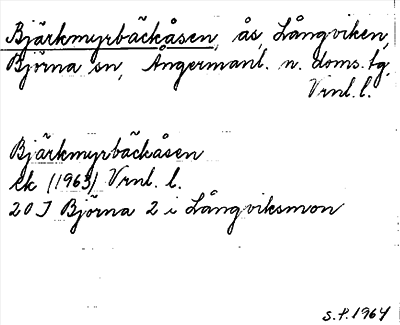 Bjärkmyrbäckåsen, ås, Långviken,
Björna sn, Ångermanl. n. doms.tg,
Vrnl. l.
Bjärkmyrbäckåsen
ek (1963) Vrnl. l.
20 J Björna 2 i Långviksmon
S.P. 1964